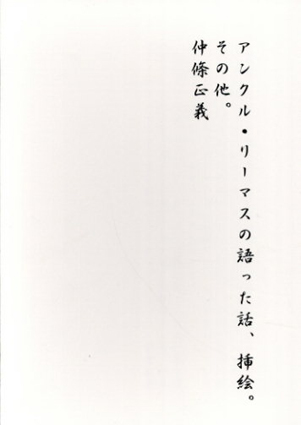 アンクル・リーマスの語った話、挿絵。
その他。
仲條正義